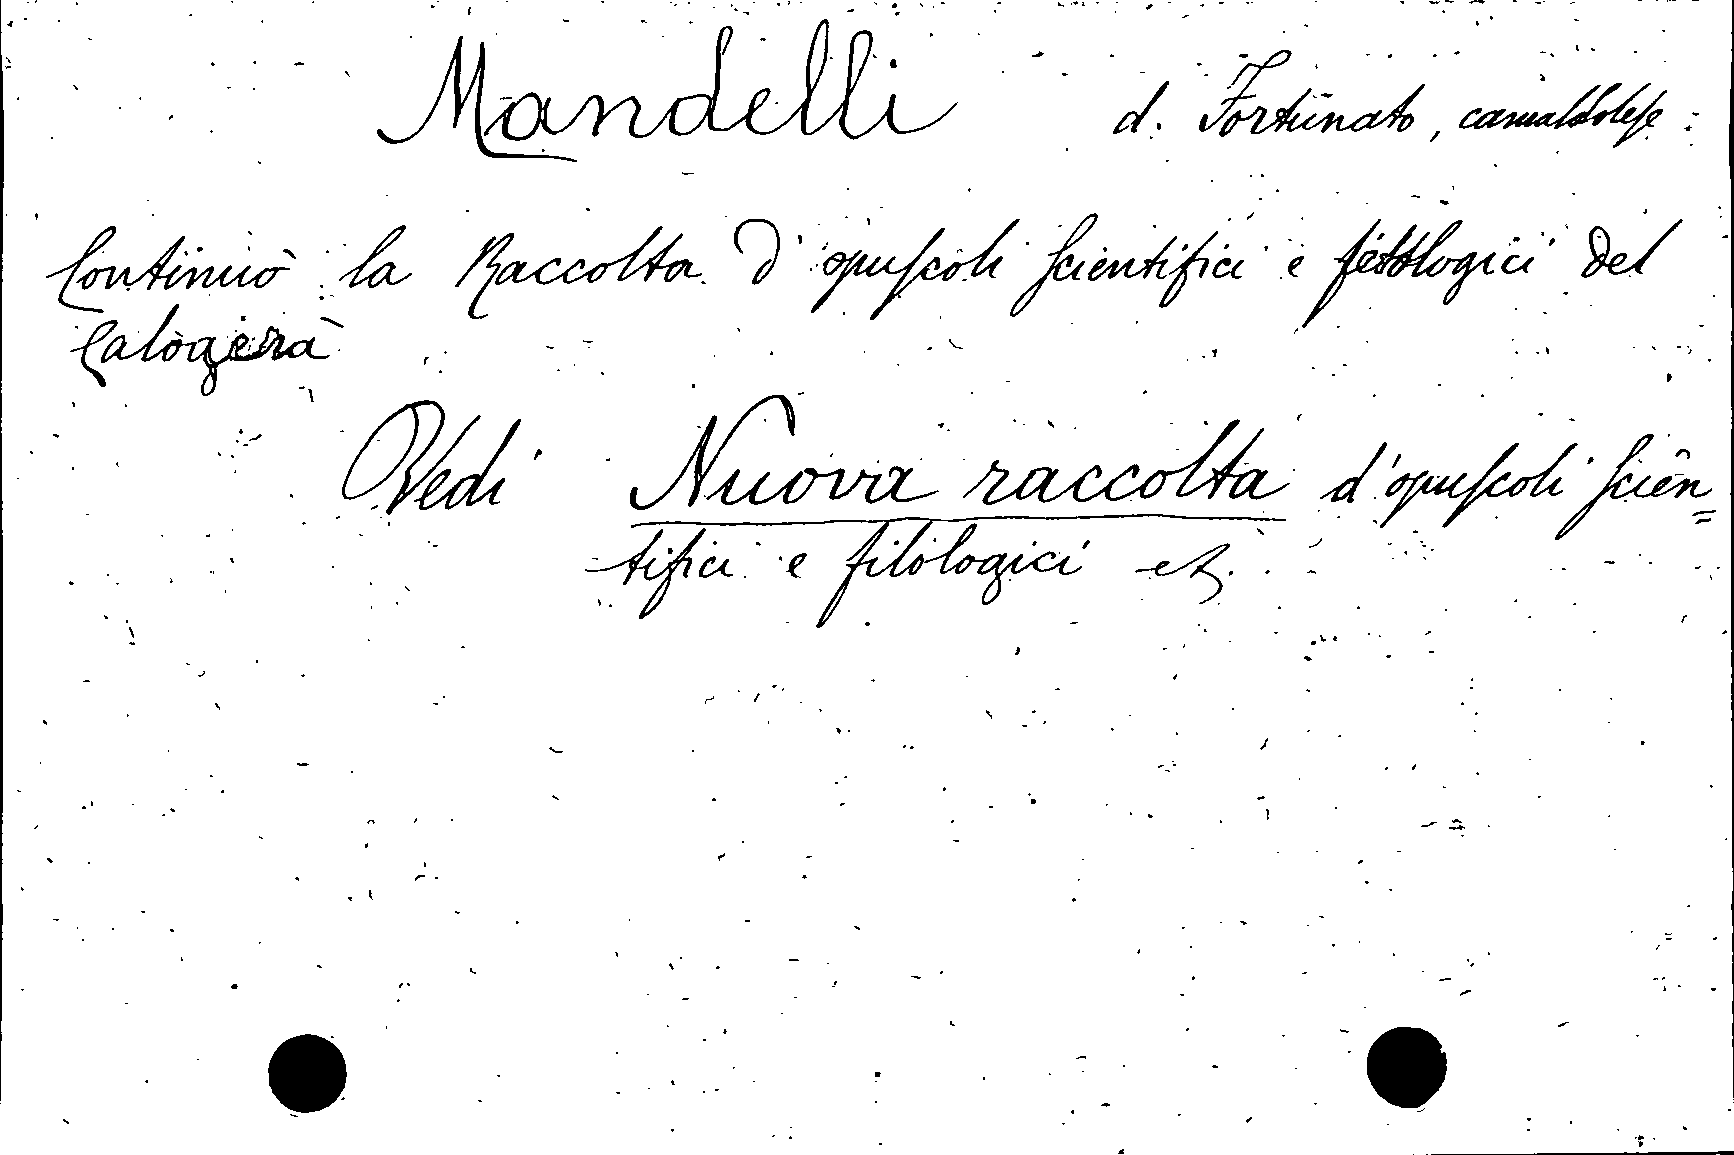 Mandelli d. Fortunato, camaldolese
Continuò la Raccolta d'opuscoli scientifici e filologici del
Calogerà
Vedi Nuova raccolta d'opuscoli scien=
tifici e filologici